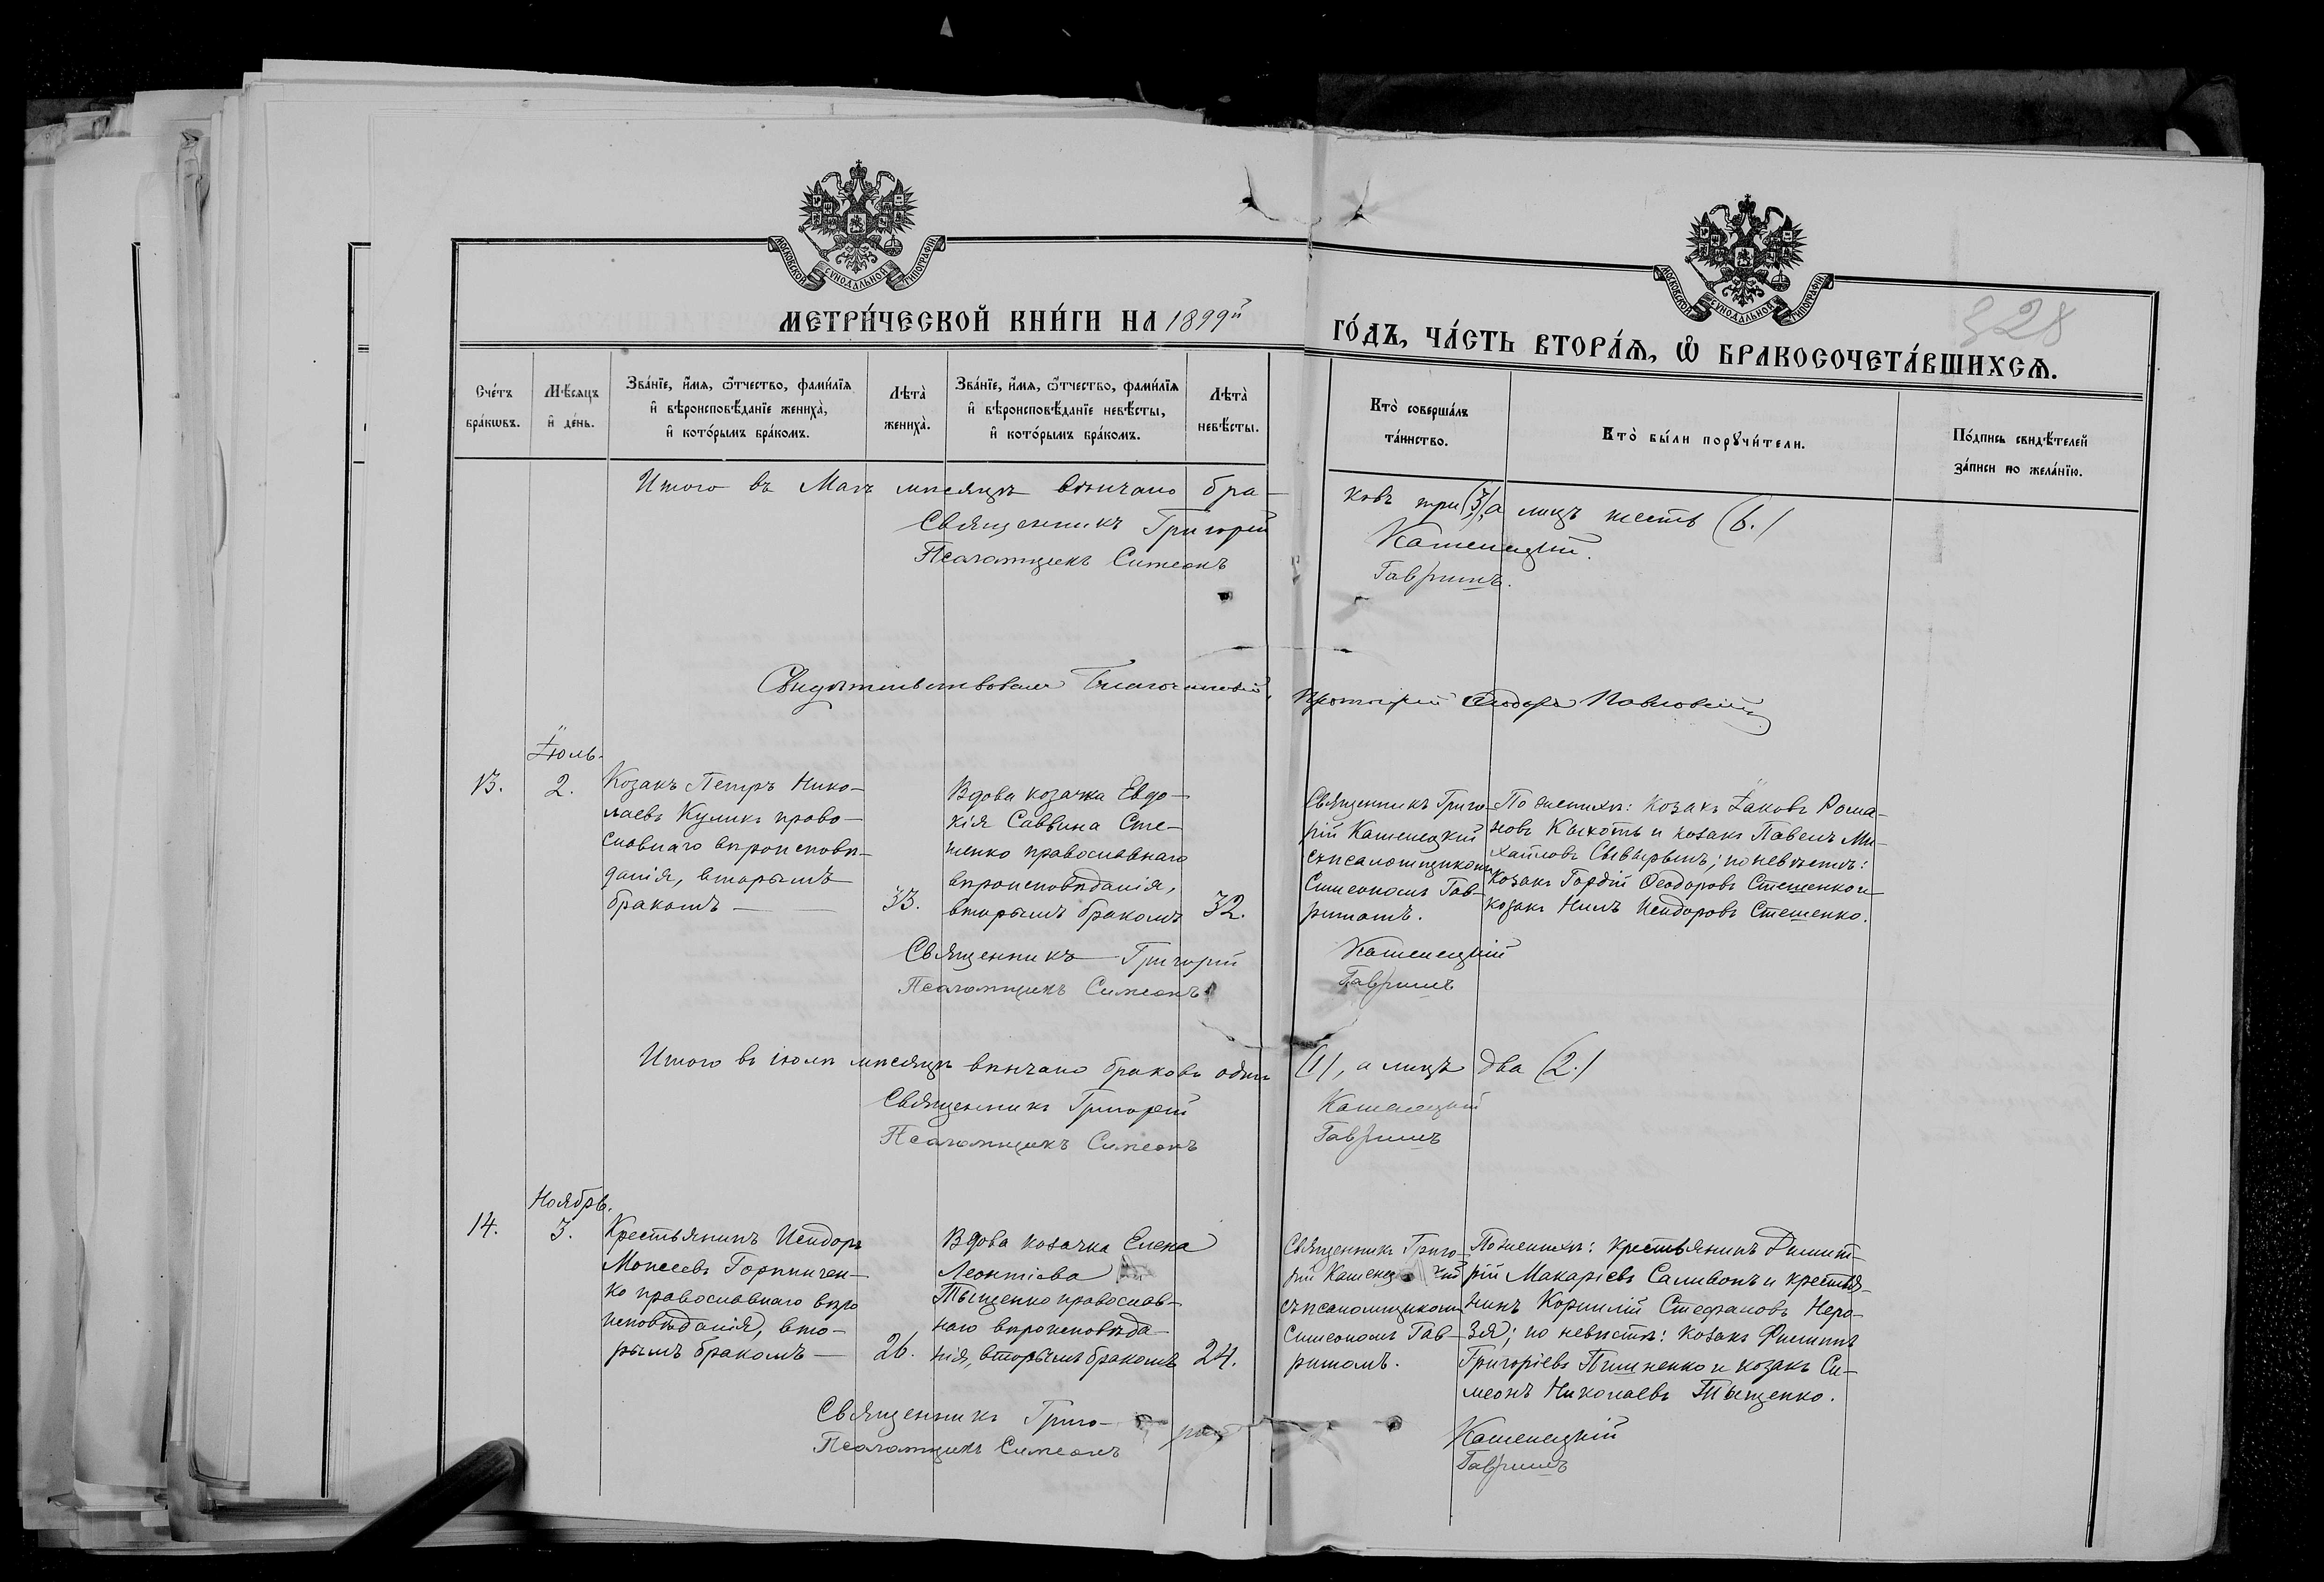 МОСКОВСКОЙ СѴНОДАЛЬНОЙ ТИПОГРАФІИ
МОСКОВСКОЙ СѴНОДАЛЬНОЙ ТИПОГРАФІИ
328
МЕТРИ́ЧЕСКОЙ КНИ́ГИ НА 1899й ГО́ДЪ, ЧА́СТЬ ВТОРА́Ѧ, Ѽ БРАКОСОЧЕТА́ВШИХСѦ.
Сче́тъ бра́кѡвъ.
Мѣ́сяцъ и҆ де́нь.
Зва́нїе, и҆́мя, ѻ҆́тчество, фами́лїя и҆ вѣроисповѣ́данїе жениха̀, и҆ кото́рымъ бра́комъ.
Лѣта̀ жениха̀.
Зва́нїе, и҆́мя, ѻ҆́тчество, фами́лїя и҆ вѣроисповѣ́данїе невѣ́сты, и҆ кото́рымъ бра́комъ.
Лѣта̀ невѣ́сты.
Кто̀ соверша́лъ та́инство.
Кто̀ бы́ли порꙋчи́тели.
По́дпись свидѣ́телей за́писи по жела́нїю.
Итого въ Маѣ мѣсяцѣ вѣнчано бра-ковъ три (3), а лицъ шесть (6.)
Священникъ Григорій Каменецкій.
Псаломщикъ Симеонъ Гавришъ.
Свидѣтельствовалъ Благочинный, Протоіерей Ѳеодоръ Павловскій
Іюль.
13.
2.
Козакъ Петръ Нико-
лаевъ Куликъ право-
славнаго вѣроисповѣ-
данія, вторымъ
бракомъ —
33.
Вдова козачка Евдо-
кія Саввина Сте-
шенко православнаго
вѣроисповѣданія,
вторымъ бракомъ
32.
Священникъ Григо-
рій Каменецкій
съ псаломщикомъ
Симеономъ Гав-
ришомъ.
По женихѣ: козакъ Іаковъ Рома-
новъ и козакъ Павелъ Ми-
хайловъ; по невѣстѣ:
козакъ Гордій Ѳеодоровъ Стешенко и
козакъ Нилъ Исидоровъ Стешенко.
Священникъ Григорій Каменецкій
Псаломщикъ Симеонъ Гавришъ
Итого въ іюлѣ мѣсяцѣ вѣнчано браковъ одинъ (1), а лицъ два (2.)
Священникъ Григорій Каменецкій
Псаломщикъ Симеонъ Гавришъ
Ноябрь.
14.
3.
Крестьянинъ Исидоръ
Моисеевъ Горпинчен-
ко православнаго вѣро
исповѣданія, вто-
рымъ бракомъ —
26.
Вдова козачка Елена
Леонтіева
Тыщенко православ-
наго вѣроисповѣда-
нія, вторымъ бракомъ
24.
Священникъ Григо-
рій Каменецкій
съ псаломщикомъ
Симеономъ Гав-
ришомъ.
По женихѣ: крестьянинъ Димит-
рій Макаріевъ Саливонъ и крестья-
нинъ Корнилій Стефановъ Нера-
зя; по невѣстѣ: козакъ Филиппъ
Григоріевъ и козакъ Си-
меонъ Николаевъ Тыщенко.
Священникъ Григо-рій Каменецкій
Псаломщикъ Симеонъ Гавришъ